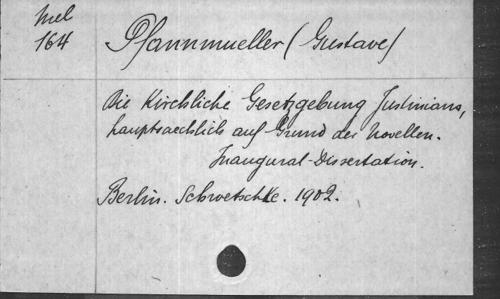 Mel
164
Pfannmueller (Gustave)
Die Kirchliche Gesetzgebung Justinians,
hauptsaechlich auf Grund der Novellen.
Inaugural-Dissertation.
Berlin. Schwetschke. 1902.